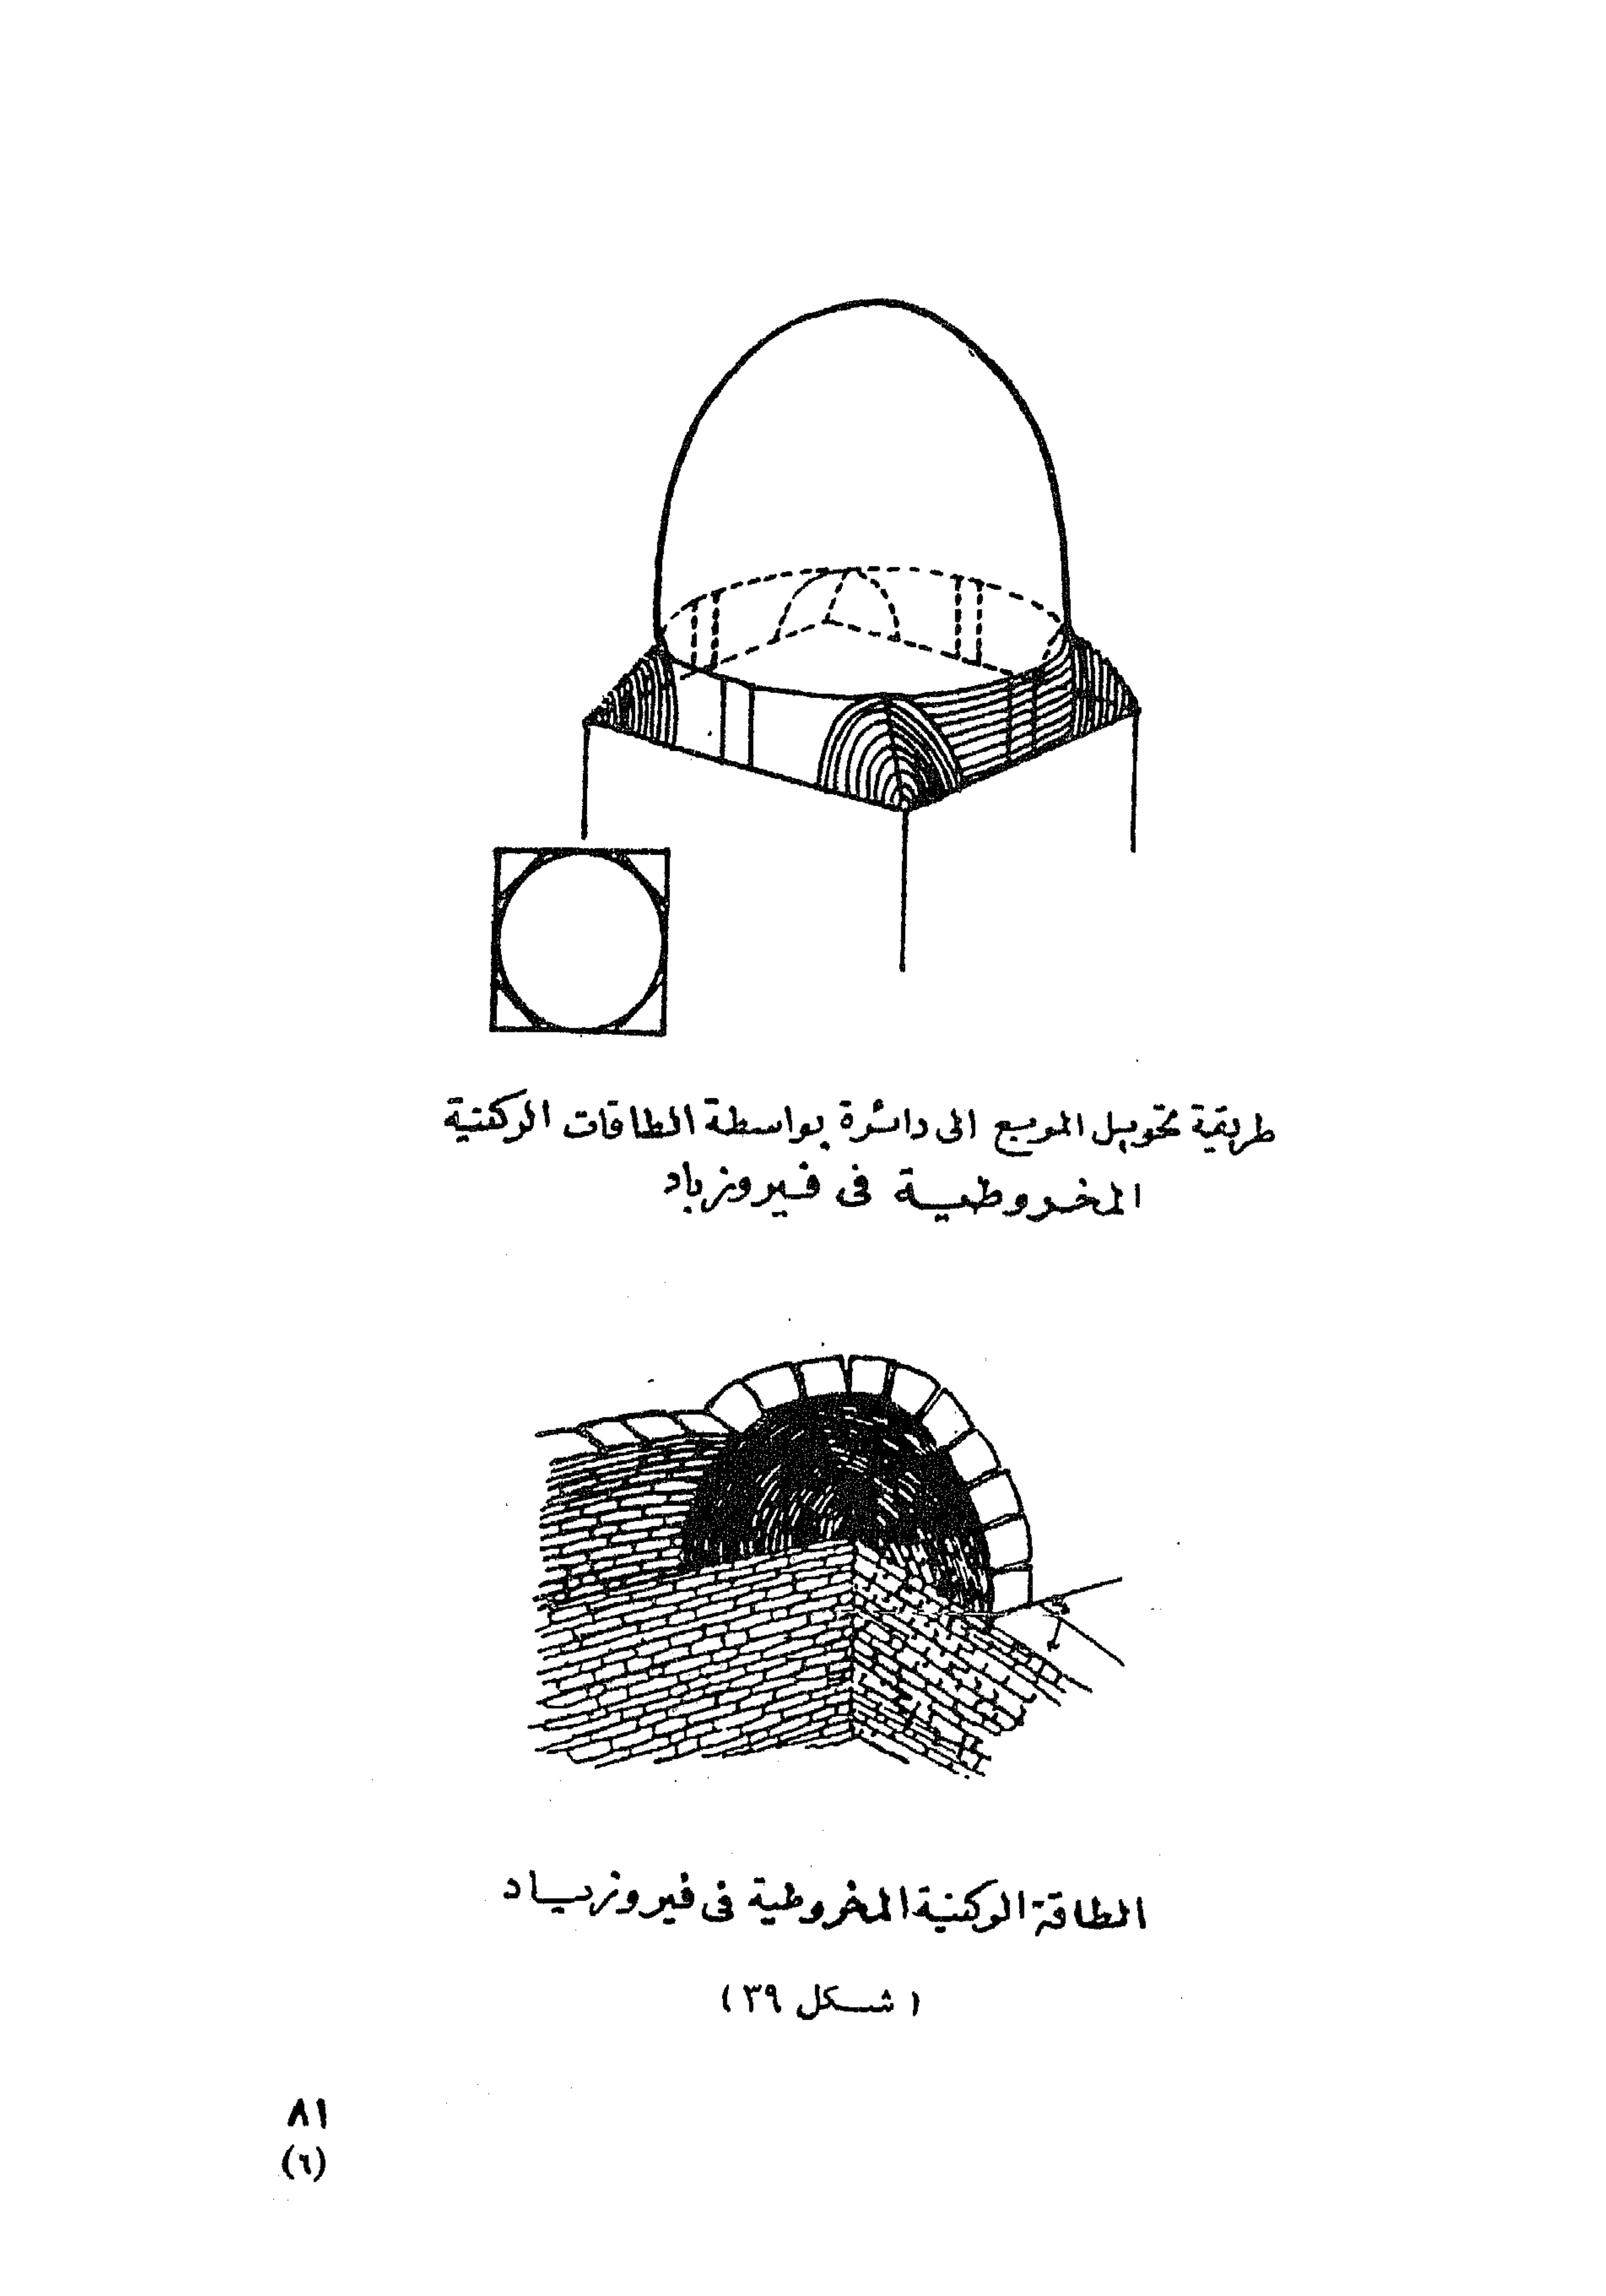 طريقة تحويل المربع الى دائرة بواسطة الطاقات الركنية
المخروطية فى فيروزباد
الطاقة الركنية المخروطية فى فيروزباد
( شكل ٣٩ )
٨١
(٦)